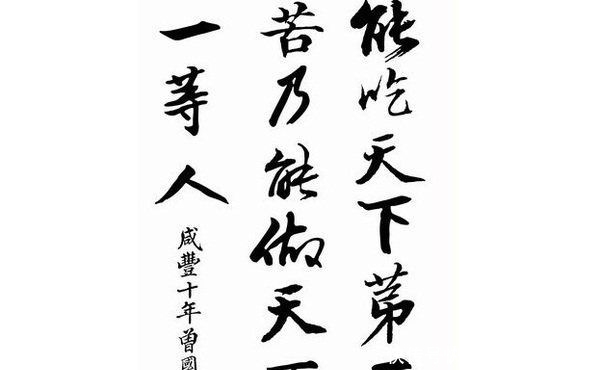 能吃天下第
苦乃能做天下
一等人
咸豐十年曾國